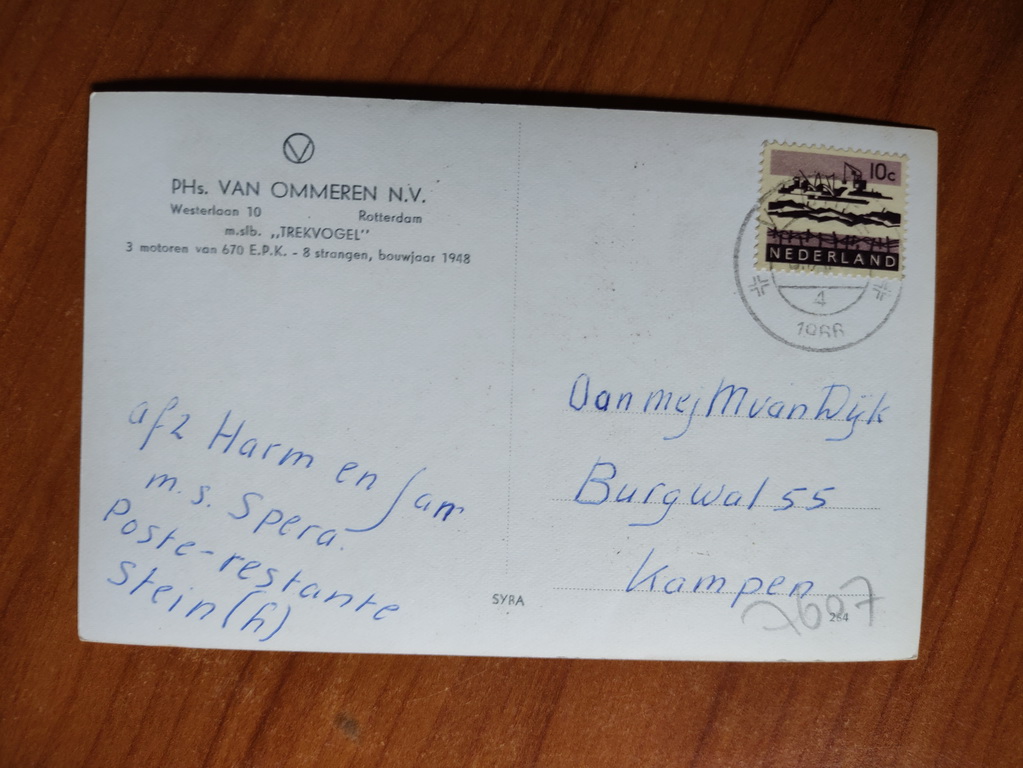 PHs. VAN OMMEREN N.V.
Westerlaan 10 Rotterdam
m.slb. „TREKVOGEL”
3 motoren van 670 E.P.K. - 8 strangen, bouwjaar 1948
10c
NEDERLAND
4
1966
Aan mej M van Dijk
Burgwal 55
Kampen
afz Harm en Jan
m.s. Spera.
Poste-restante
Stein (h)
SYRA
284
2607